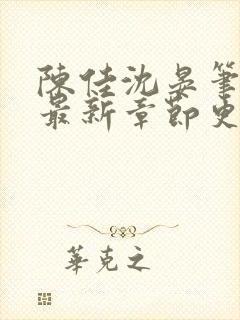 陳佳沈晏筆
最新章節更
華克之